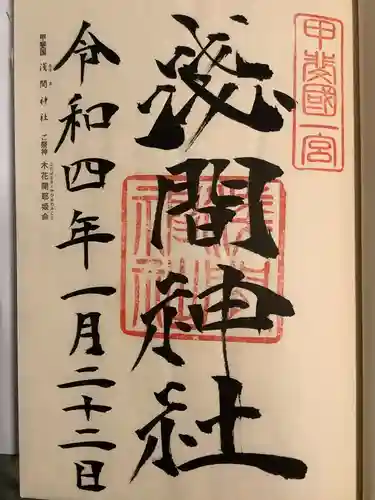 甲斐國一宮
淺間神社
令和四年一月二十二日
甲斐国 浅間神社 ご祭神 木花開耶姫命